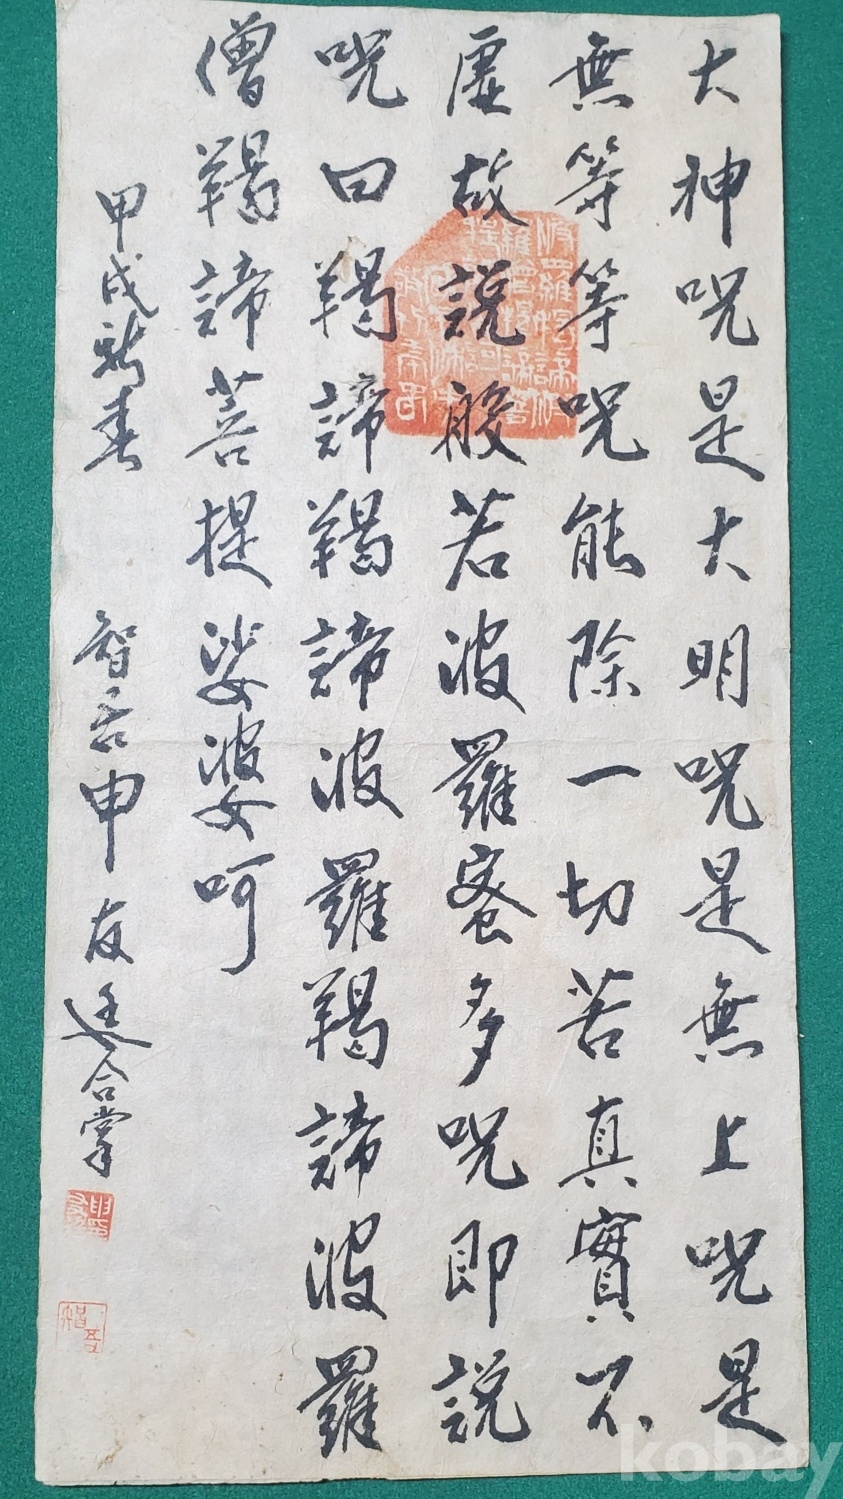 大神呪是大明呪是無上呪是
無等等呪能除一切苦真實不
虛故說般若波羅蜜多呪即說
呪曰羯諦羯諦波羅羯諦波羅
僧羯諦菩提娑婆呵
甲戌新春 智吾申友廷合掌
kobay